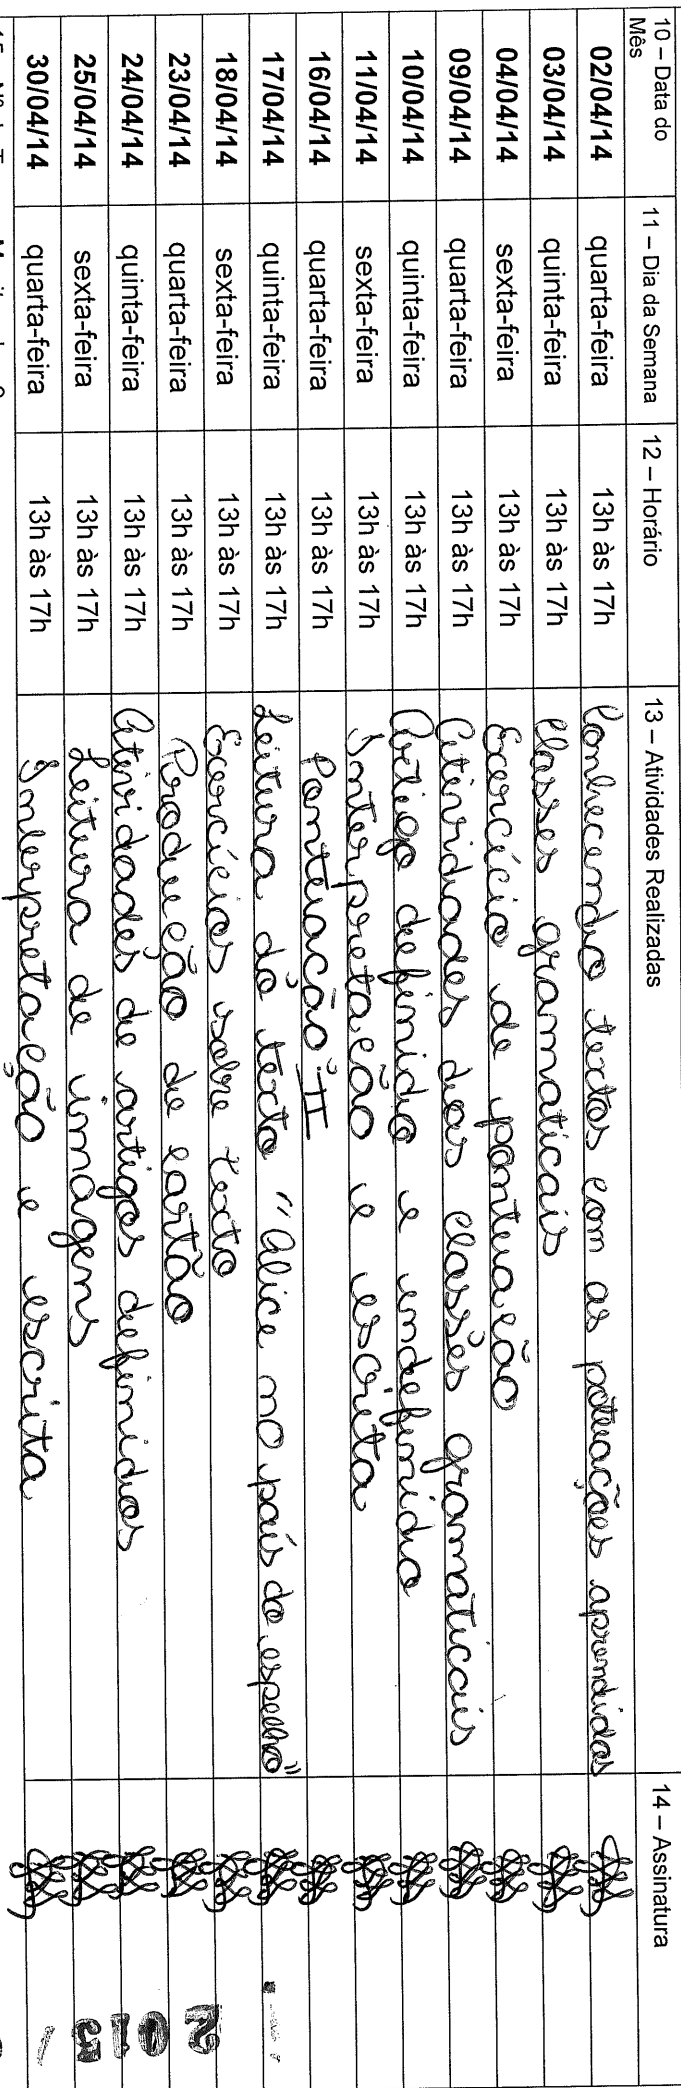 10 – Data do Mês 11 – Dia da Semana 12 – Horário 13 – Atividades Realizadas 14 – Assinatura
02/04/14 quarta-feira 13h às 17h Conhecendo textos com as potuações aprendidas
03/04/14 quinta-feira 13h às 17h Classes gramaticais
04/04/14 sexta-feira 13h às 17h Exercício de pontuação
09/04/14 quarta-feira 13h às 17h Atividades das classes gramaticais
10/04/14 quinta-feira 13h às 17h Artigo definido e indefinido
11/04/14 sexta-feira 13h às 17h Interpretação e escrita
16/04/14 quarta-feira 13h às 17h Pontuação II
17/04/14 quinta-feira 13h às 17h Leitura do texto "Alice no país do espelho"
18/04/14 sexta-feira 13h às 17h Exercícios sobre texto
23/04/14 quarta-feira 13h às 17h Produção de cartão
24/04/14 quinta-feira 13h às 17h Atividades de artigos definidos
25/04/14 sexta-feira 13h às 17h Leitura de imagens
30/04/14 quarta-feira 13h às 17h Interpretação e escrita
2013 /